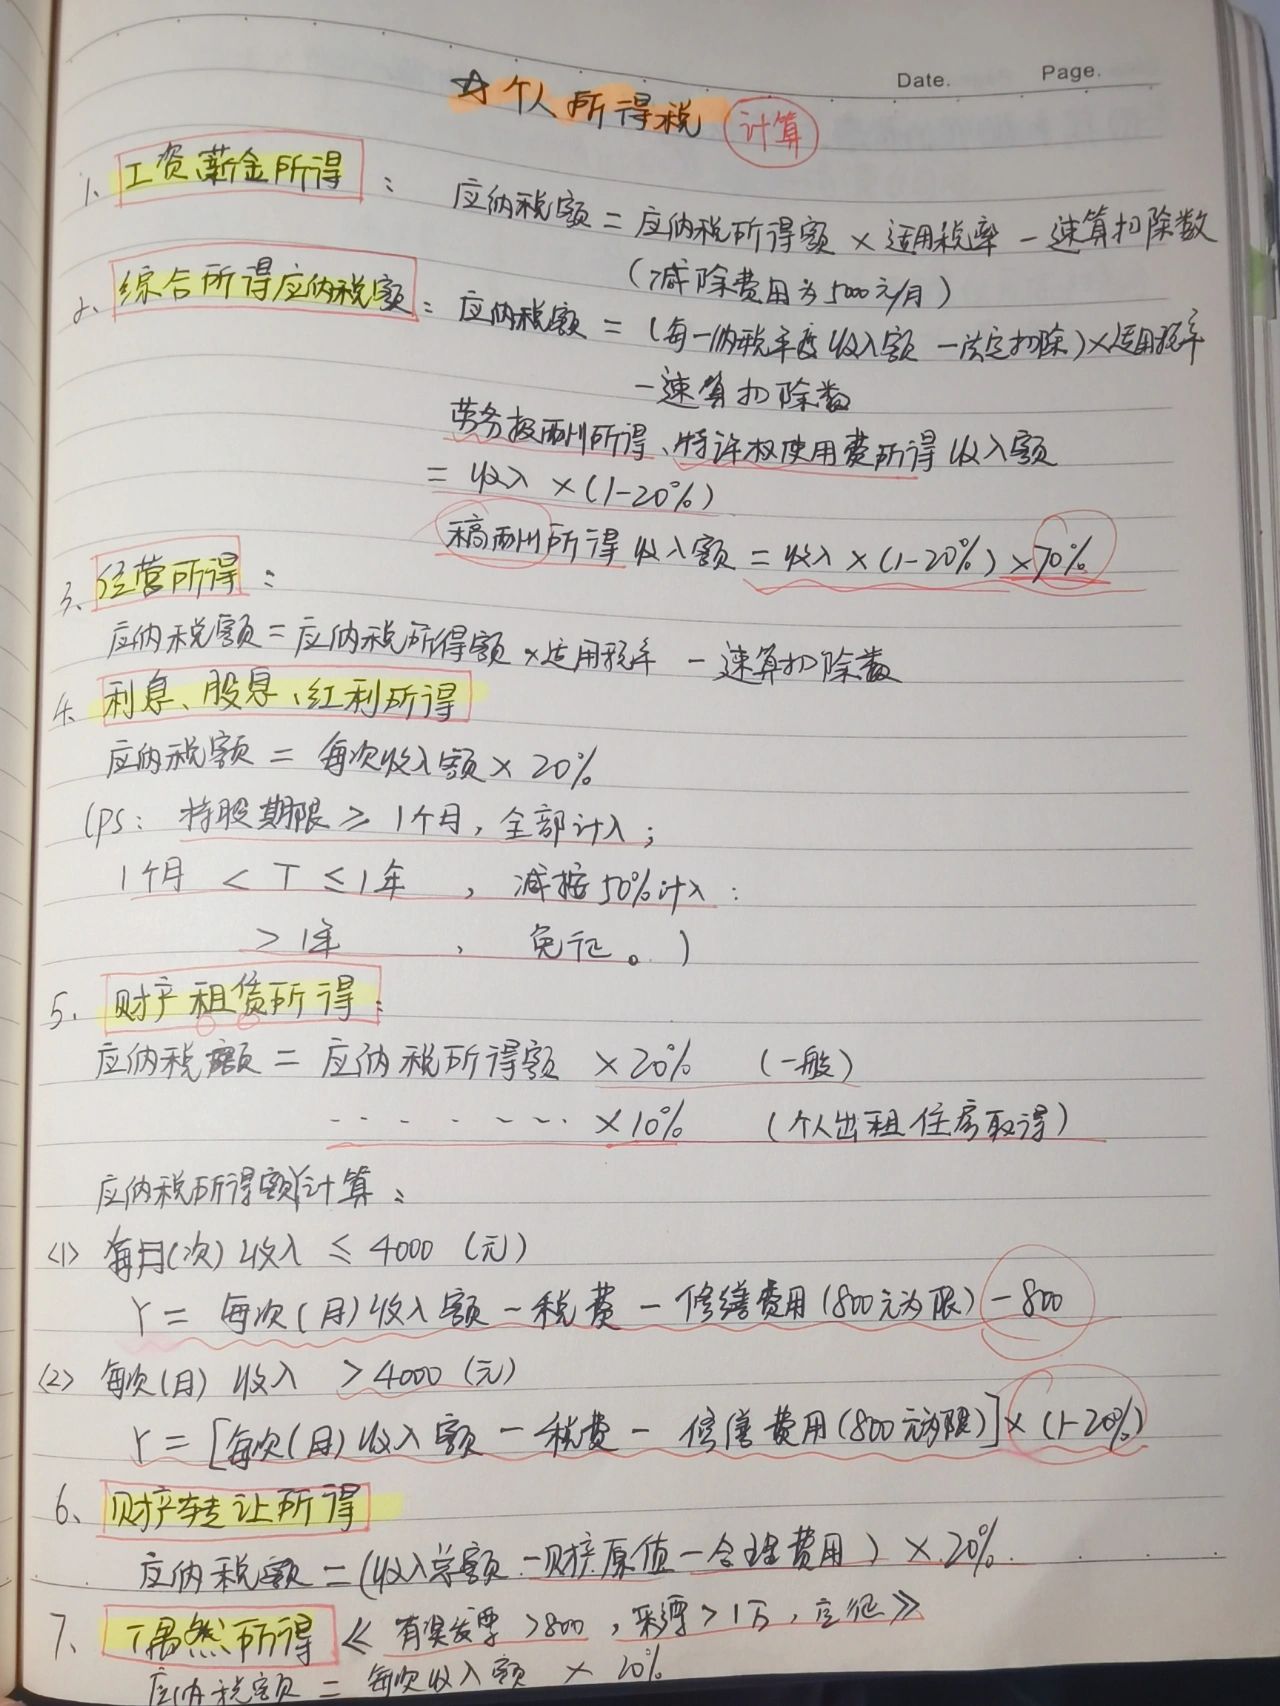 Date.
Page.
☆个人所得税 计算
1、工资、薪金所得： 应纳税额 = 应纳税所得额 × 适用税率 － 速算扣除数
（减除费用为5000元/月）
2、综合所得应纳税额： 应纳税额 =（每一纳税年度收入额 －法定扣除）×适用税率
－速算扣除数
劳务报酬所得、特许权使用费所得收入额
= 收入 ×（1-20%）
稿酬所得收入额 = 收入 ×（1-20%）×70%
3、经营所得：
应纳税额 = 应纳税所得额 ×适用税率 － 速算扣除数
4、利息、股息、红利所得
应纳税额 = 每次收入额 × 20%
（PS： 持股期限 ≥ 1个月，全部计入；
1个月 < T ≤ 1年 ，减按50%计入：
>1年 ， 免征。）
5、财产租赁所得：
应纳税额 = 应纳税所得额 ×20% （一般）
- - - - ~ ~ - ×10% （个人出租住房取得）
应纳税所得额Y计算：
<1> 每月（次）收入 ≤ 4000（元）
Y = 每次（月）收入额 － 税费 － 修缮费用（800元为限）－800
<2> 每次（月）收入 >4000（元）
Y = [每次（月）收入额 － 税费 － 修缮费用（800元为限）]×（1-20%）
6、财产转让所得
应纳税额 =（收入总额 －财产原值－合理费用）× 20%
7、偶然所得《 有奖发票 >800 ，彩票>1万，应征》
应纳税额 = 每次收入额 × 20%